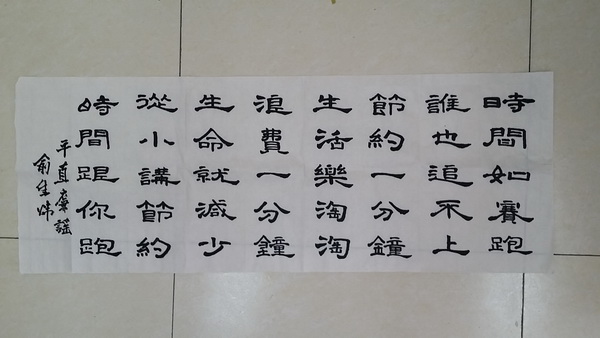 時間如賽跑
誰也追不上
節約一分鐘
生活樂淘淘
浪費一分鐘
生命就減少
從小講節約
時間跟你跑
平直謠
俞生